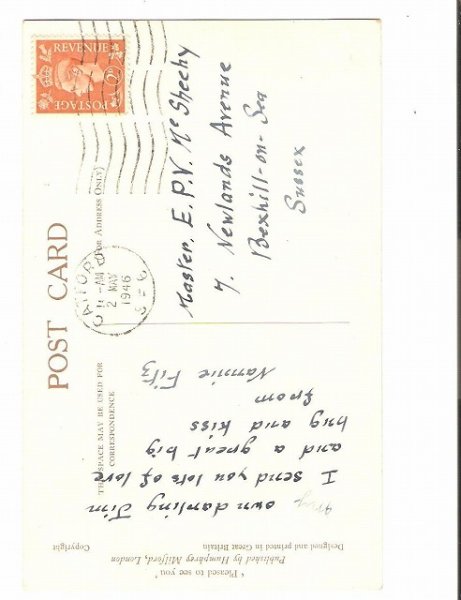 POST CARD
THIS SPACE MAY BE USED FOR
CORRESPONDENCE
(FOR ADDRESS ONLY)
REVENUE
POSTAGE
CATFORD
11 - AM
2 MAY
1946
S.E.6
My own darling Jim
I send you lots of love
and a great big
hug and kiss
from
Nannie Fitz
Master. E.P.V. McSheehy
7. Newlands Avenue
Bexhill-on-Sea
Sussex
"Pleased to see you"
Published by Humphrey Milford, London
Designed and printed in Great Britain
Copyright